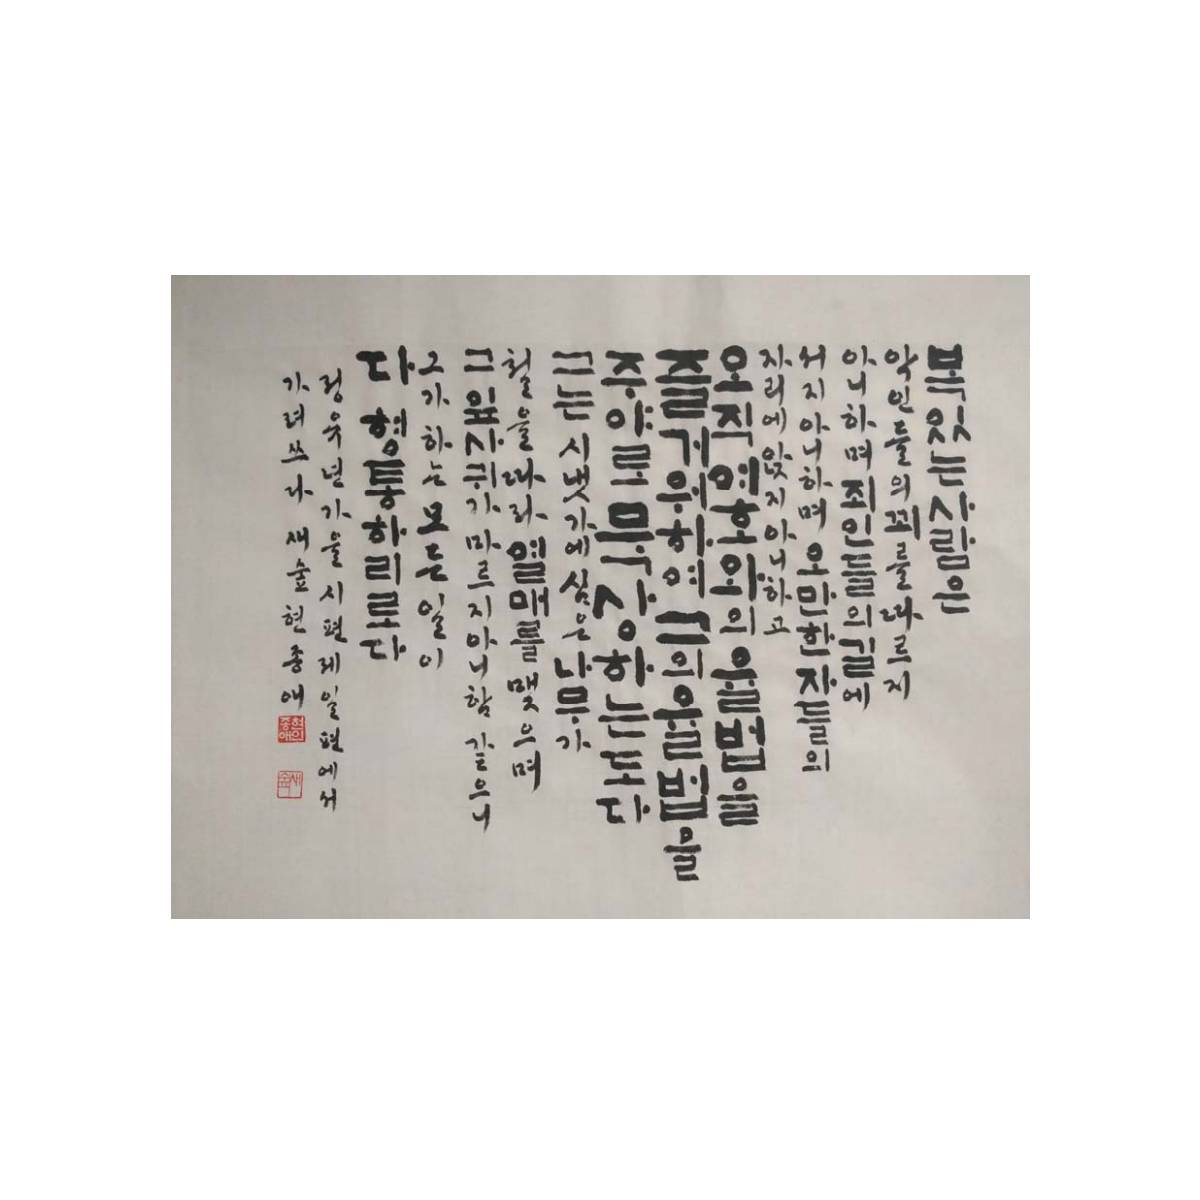 복있는사람은
악인들의꾀를따르지
아니하며죄인들의길에
서지아니하며오만한자들의
자리에앉지아니하고
오직여호와의율법을
즐거워하여그의율법을
주야로묵상하는도다
그는시냇가에심은나무가
철을따라열매를맺으며
그잎사귀가마르지아니함 같으니
그가하는모든일이
다 형통하리로다
정유년가을시편제일편에서
가려쓰다 새숲현종애
현종애인
새숲